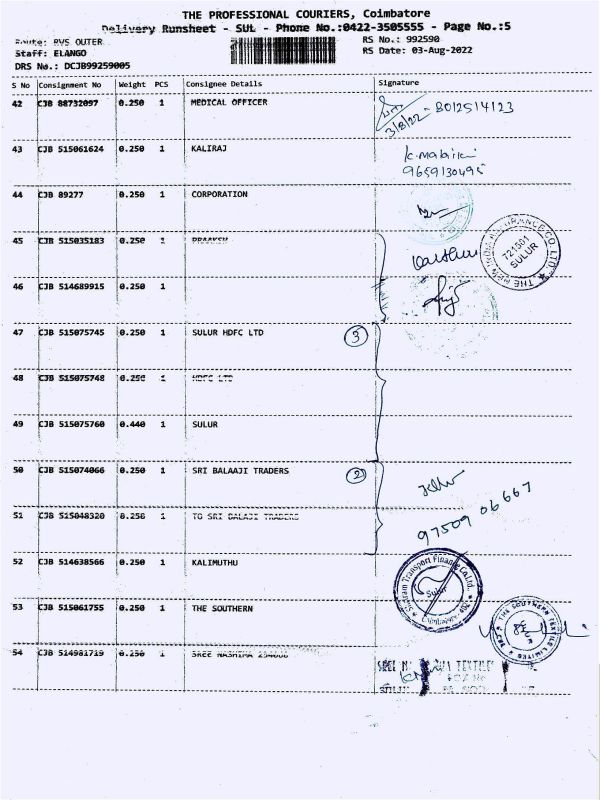 THE PROFESSIONAL COURIERS, Coimbatore
Delivery Runsheet - SUL - Phone No.:0422-3505555 - Page No.:5
Route: RVS OUTER
RS No.: 992590
Staff: ELANGO
RS Date: 03-Aug-2022
DRS No.: DCJB99259005
S No Consignment No Weight PCS Consignee Details Signature
42 CJB 88732097 0.250 1 MEDICAL OFFICER
3/8/22 - 8012514123
43 CJB 515061624 0.250 1 KALIRAJ
9659130495
44 CJB 89277 0.250 1 CORPORATION
45 CJB 515035183 0.250 1
721501
SULUR
46 CJB 514689915 0.250 1
47 CJB 515075745 0.250 1 SULUR HDFC LTD 3
48 CJB 515075748 0.250 1 HDFC LTD
49 CJB 515075760 0.440 1 SULUR
50 CJB 515074066 0.250 1 SRI BALAAJI TRADERS 2
97509 06667
51 CJB 515048320 0.250 1 TO SRI BALAJI TRADERS
52 CJB 514638566 0.250 1 KALIMUTHU
Sulur
Coimbatore
53 CJB 515061755 0.250 1 THE SOUTHERN
THE SOUTHERN TEXTILE LIMITED
54 CJB 514981719 0.250 1